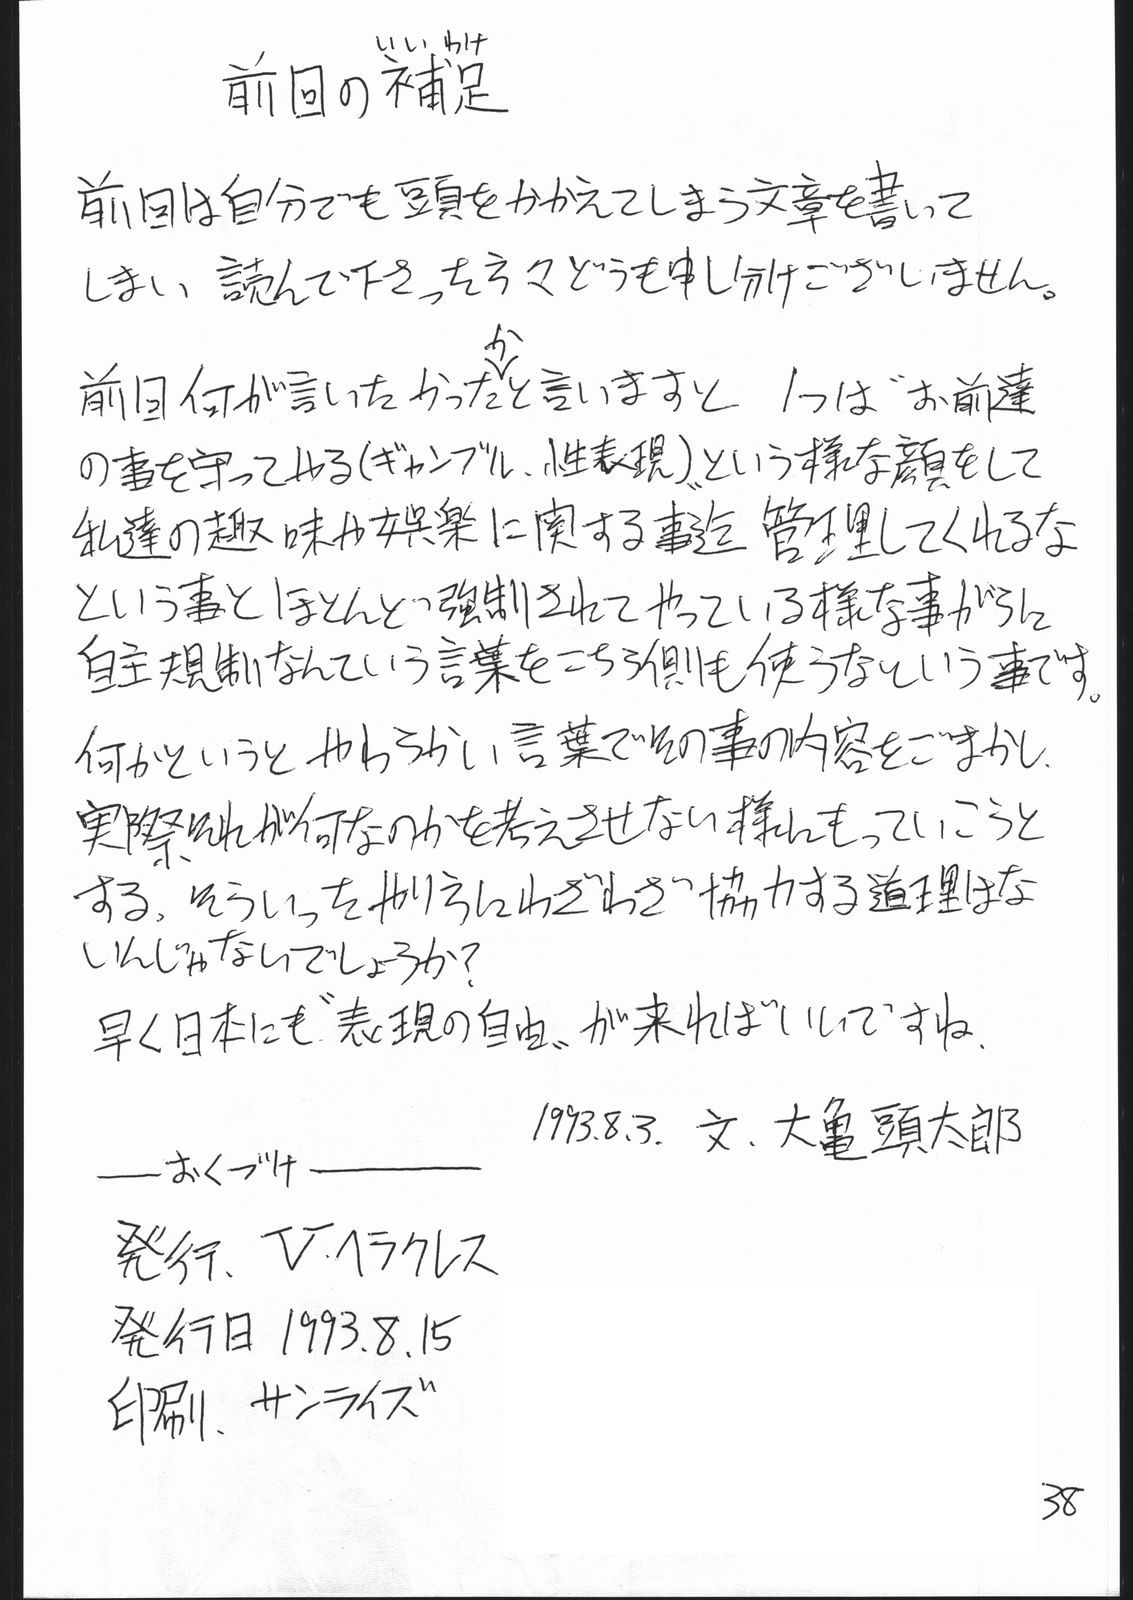 いいわけ
前回の補足
前回は自分でも頭をかかえてしまう文章を書いて
しまい 読んで下さった方々どうも申し分けございません。
か
前回何が言いたかったと言いますと 1つは〝お前達
の事を守ってやる(ギャンブル、性表現)〟という様な顔をして
私達の趣味や娯楽に関する事迄管理してくれるな
という事とほとんど強制されてやっている様な事がらに
自主規制なんていう言葉をこちら側も使うなという事です。
何かというとやわらかい言葉でその事の内容をごまかし、
実際それが何なのかを考えさせない様にもっていこうと
する、そういったやり方にわざわざ協力する道理はな
いんじゃないでしょうか?
早く日本にも〝表現の自由〟が来ればいいですね、
1993.8.3. 文、大亀頭太郎
おくづけ
発行、V・ヘラクレス
発行日 1993.8.15
印刷、サンライズ
38